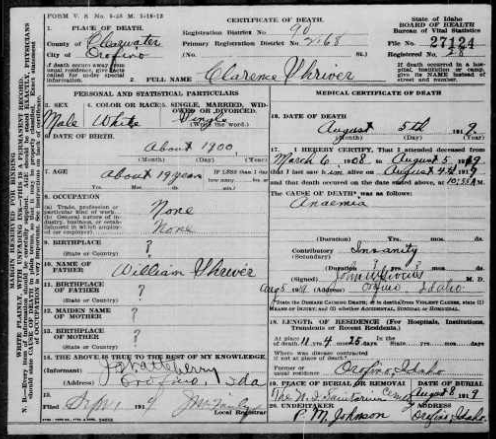 FORM V. S. No. 5-25 M. 5-18-15
CERTIFICATE OF DEATH
State of Idaho
BOARD OF HEALTH
Bureau of Vital Statistics
1. PLACE OF DEATH
County of Clearwater
City of Orofino
Registration District No. 90
Primary Registration District No. 2168
(No. St.)
File No. 27124
Registered No.
If death occurred away from usual residence, give facts called for under special information.
2 FULL NAME Clarence Shriver
If death occurred in a hospital, institution or camp, give its NAME instead of street and number.
PERSONAL AND STATISTICAL PARTICULARS
MEDICAL CERTIFICATE OF DEATH
3. SEX
Male
4. COLOR OR RACE
White
5. SINGLE, MARRIED, WIDOWED OR DIVORCED.
Single
(Write the word.)
6 DATE OF BIRTH
About 1900
(Month) (Day) (Year)
7. AGE
About 19 years
IF LESS than 1 day
8. OCCUPATION
(a) Trade, profession or particular kind of work
None
(b) General nature of industry, business, or establishment in which employed (or employer)
None
9. BIRTHPLACE
(State or Country)
?
10. NAME OF FATHER
William Shriver
11. BIRTHPLACE OF FATHER
(State or Country)
?
12. MAIDEN NAME OF MOTHER
?
13. BIRTHPLACE OF MOTHER
(State or Country)
?
14. THE ABOVE IS TRUE TO THE BEST OF MY KNOWLEDGE
(Informant)
(Address) Orofino, Ida
15.
Local Registrar
16. DATE OF DEATH
August 5th 1919
(Month) (Day) (Year)
17 I HEREBY CERTIFY, That I attended deceased from
March 6, 1908 to August 5, 1919
that I last saw him alive on August 4th 1919
and that death occurred on the date stated above, at 10:35 A.M.
The CAUSE OF DEATH* was as follows:
Anaemia
(Duration) yrs. mos. ds.
Contributory Insanity
(Secondary)
(Duration) ? yrs. ? mos. ds.
(Signed) M. D.
Aug 5 1919. (Address) Orofino, Idaho
18. LENGTH OF RESIDENCE (For Hospitals, Institutions, Transients or Recent Residents.)
At place 11 yrs. 4 mos. 25 days.
Where was disease contracted
if not at place of death?
Former or
usual residence Orofino, Idaho
19. PLACE OF BURIAL OR REMOVAL
The N. I. Sanitarium Cem.
DATE OF BURIAL
August 8 1919
20. UNDERTAKER
P. M. Johnson
ADDRESS
Orofino, Idaho.
MARGIN RESERVED FOR BINDING
WRITE PLAINLY, WITH UNFADING INK—THIS IS A PERMANENT RECORD.